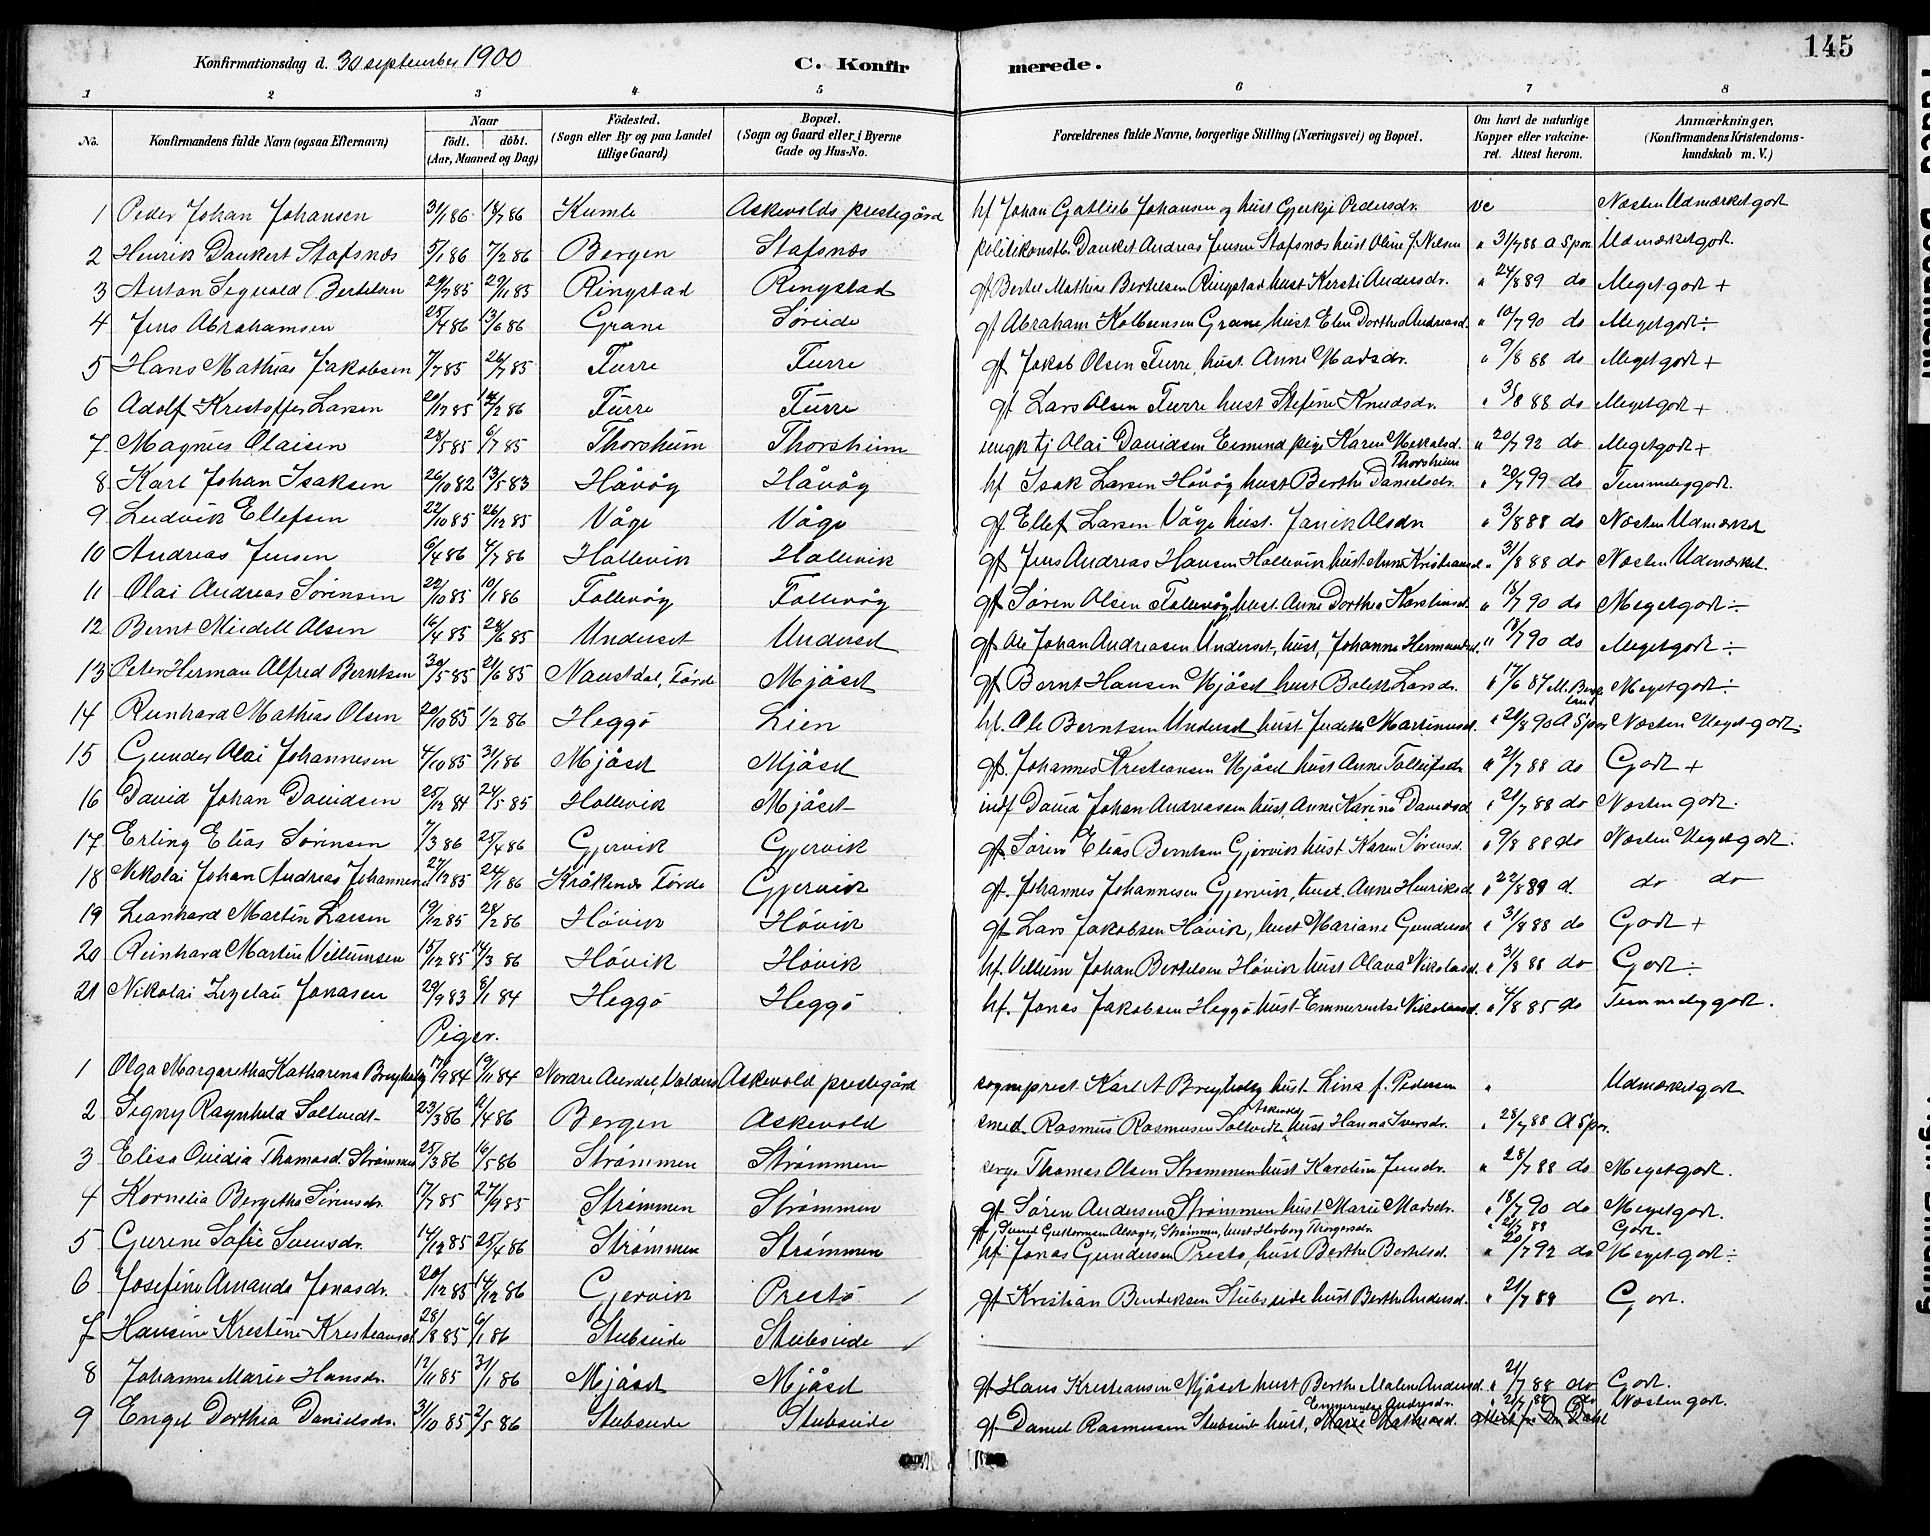 Konfirmationsdag d. 30 september 1900 C. Konfirmerede. 145
1 2 3 4 5 6 7 8
No. Konfirmandens fulde Navn (ogsaa Efternavn) Naar født. døbt. (Aar, Maaned og Dag) Fødested. (Sogn eller By og paa Landet tillige Gaard) Bopæl. (Sogn og Gaard eller i Byerne Gade og Hus-No. Forældrenes fulde Navne, borgerlige Stilling (Næringsvei) og Bopæl. Om havt de naturlige Kopper eller vakcineret. Attest herom. Anmærkninger. (Konfirmandens Kristendomskundskab m. V.)
1 Peder Johan Johansen 31/1 86 14/7 86 Kumle Askevolds prestegård hf Johan Gatlieb Johansen og hust Gjertje Pedersdr. vc Næsten Udmærket godt
2 Henrik Dankert Stafsnæs 5/1 86 7/2 86 Bergen Stafsnæs politikonstb. Danket Andreas Jensen Stafsnæs hust Oline f. Nilsen " 31/7 88 A Spor Udmærket godt.
3 Anton Sigvald Bertelsen 29/7 85 29/11 85 Ringstad Ringstad gf Bertel Mathias Bertelsen Ringstad hust Kersti Andersdr. " 24/8 89 do Meget godt +
4 Jens Abrahamsen 25/4 86 13/6 86 Grane Søreide gf Abraham Kolbensen Grane, hust. Elen Dorthea Andreasd. " 10/7 90 do Meget godt ÷
5 Hans Mathias Jakobsen 7/7 85 26/7 85 Furre Furre gf Jakob Olsen Furre, hust. Anne Madsdr. " 9/8 88 do Meget godt +
6 Adolf Kristoffer Larsen 20/12 85 14/2 86 Furre Furre gf Lars Olsen Furre hust Stefine Knudsdr. " 3/8 88 do Meget godt +
7 Magnus Olaisen 24/5 85 6/7 85 Thorsheim Thorsheim ungk tj Olai Davidsen Esmend pige Karen Mikkelsd. Thorsheim " 20/7 92 do Meget godt +
8 Karl Johan Isaksen 26/10 82 13/5 83 Håvåg Håvåg hf Isak Larsen Håvåg hust Berthe Danielsdr. " 20/7 99 do Temmelig godt.
9 Ludvik Ellefsen 22/10 85 26/12 85 Våge Våge gf Ellef Larsen Våge hust. Janik Olsdr " 3/8 88 do Næsten Udmærket
10 Andreas Jensen 6/4 86 4/7 86 Hallevik Hallevik gf Jens Andreas Hansen Hallevik hust. Anne Kristiansd. " 31/8 88 do Næsten Udmærket.
11 Olai Andreas Sørensen 22/10 85 10/1 86 Follevåg Follevåg gf Søren Olsen Follevåg, hust. Anne Dorthea Karstensd. " 18/7 90 do Meget godt ÷
12 Bernt Meidell Olsen 16/4 85 24/6 85 Underset Underset gf Ole Johan Andreasen Underset, hust, Johanne Hermundsd. " 18/7 90 do Meget godt ÷
13 Peter Herman Alfred Berntsen 30/5 85 21/6 85 Naustdal, Førde Mjåset gf Bernt Hansen Mjåset hust Bolette Larsdr. " 17/6 87 M. Meget godt ÷
14 Reinhard Mathias Olsen 20/10 85 1/2 86 Heggø Lien hf. Ole Berntsen Underset hust Judithe Martinusd. " 21/8 90 A Spor Næsten Meget godt.
15 Gunder Olai Johannesen 4/10 85 31/1 86 Mjåset Mjåset gf. Johannes Kristiansen Mjåset hust Anne Tollefsdr " 21/7 88 do Godt +
16 David Johan Davidsen 25/12 84 24/5 85 Hallevik Mjåset indf David Johan Andreassen hust, Anne Karine Davidsd " 21/7 88 do Næsten godt.
17 Erling Elias Sørensen 7/3 86 25/4 86 Gjervik Gjervik gf. Søren Elias Berntsen Gjervik hust Karen Sørensd. " 9/8 88 do Næsten Meget godt.
18 Nikolai Johan Andreas Johannesen 27/12 85 24/1 86 Kråkenæs Førde Gjervik gf. Johannes Johannesen Gjervik, hust. Anne Henriksd " 22/8 89 d. do do
19 Leonhard Martin Larsen 19/12 85 28/2 86 Høvik Høvik gf Lars Jakobsen Høvik, hust Mariane Gundersd " 31/8 88 do Godt +
20 Reinhard Martin Villumsen 15/12 85 14/3 86 Høvik Høvik hf. Villum Johan Bertelsen Høvik hust Olava Nikolaisd. " 31/8 88 do Godt ÷
21 Nikolai Zezelau Jonasen 29/9 83 8/1 84 Heggø Heggø hf. Jonas Jakobsen Heggø hust Emmerentse Nikolaisd. " 4/8 85 do Temmelig godt.
Piger.
1 Olga Margaretha Katharena Breyholtz 17/9 84 19/11 84 Nordre Aurdal, Valders Askevold prestegård sogneprest. Karl A Breyholtz hust. Lina f. Pedersen " Udmærket godt
2 Signy Ragnhild Solheidt 23/3 86 /4 86 Bergen Askevold smed. Rasmus Rasmusen Sollheidt Askevold hust Hanna Iversdr. " 28/7 88 A Spor.
3 Elise Ovidia Thomasd Strømmen 25/3 86 16/5 86 Strømmen Strømmen serg. Thomas Olsen Strømmen hust Karoline Jensdr. " 28/7 88 do Meget godt.
4 Kornelia Bergethe Sørensdr. 17/7 85 27/9 85 Strømmen Strømmen gf Søren Andersen Strømmen hust Marie Madsdr. " 18/7 90 do Meget godt.
5 Gurine Sofie Svensdr. 14/12 85 25/4 86 Strømmen Strømmen gf, Svend Guttormsen Strømmen, hust Herborg Thorgersdr. " 21/7 88 Godt.
hf. Jonas Gundersen Prestø, hust Berthe Bertelsd. " 20/7 92 do Meget godt ÷
6 Josefine Amanda Jonasdr. 20/12 85 14/12 86 Gjervik Prestø gf. Kristian Bendiksen Stubseide hust Berthe Andersd. " 21/7 89 Godt.
7 Hansine Kristine Kristiansd. 28/8 85 6/1 86 Stubseide Stubseide
8 Johanne Marie Hansdr. 12/11 85 31/1 86 Mjåset Mjåset gf Hans Kristiansen Mjåset hust Berthe Malene Andersd. " 21/7 88 do Godt.
9 Engel Dorthea Danielsdr. 31/10 85 2/5 86 Stubseide Stubseide gf. Daniel Rasmusen Stubseide hust, Emmerentse Andersdr. Marie Mathiasd. " 21/7 88 do attest fra Dr. Dahl Næsten godt.